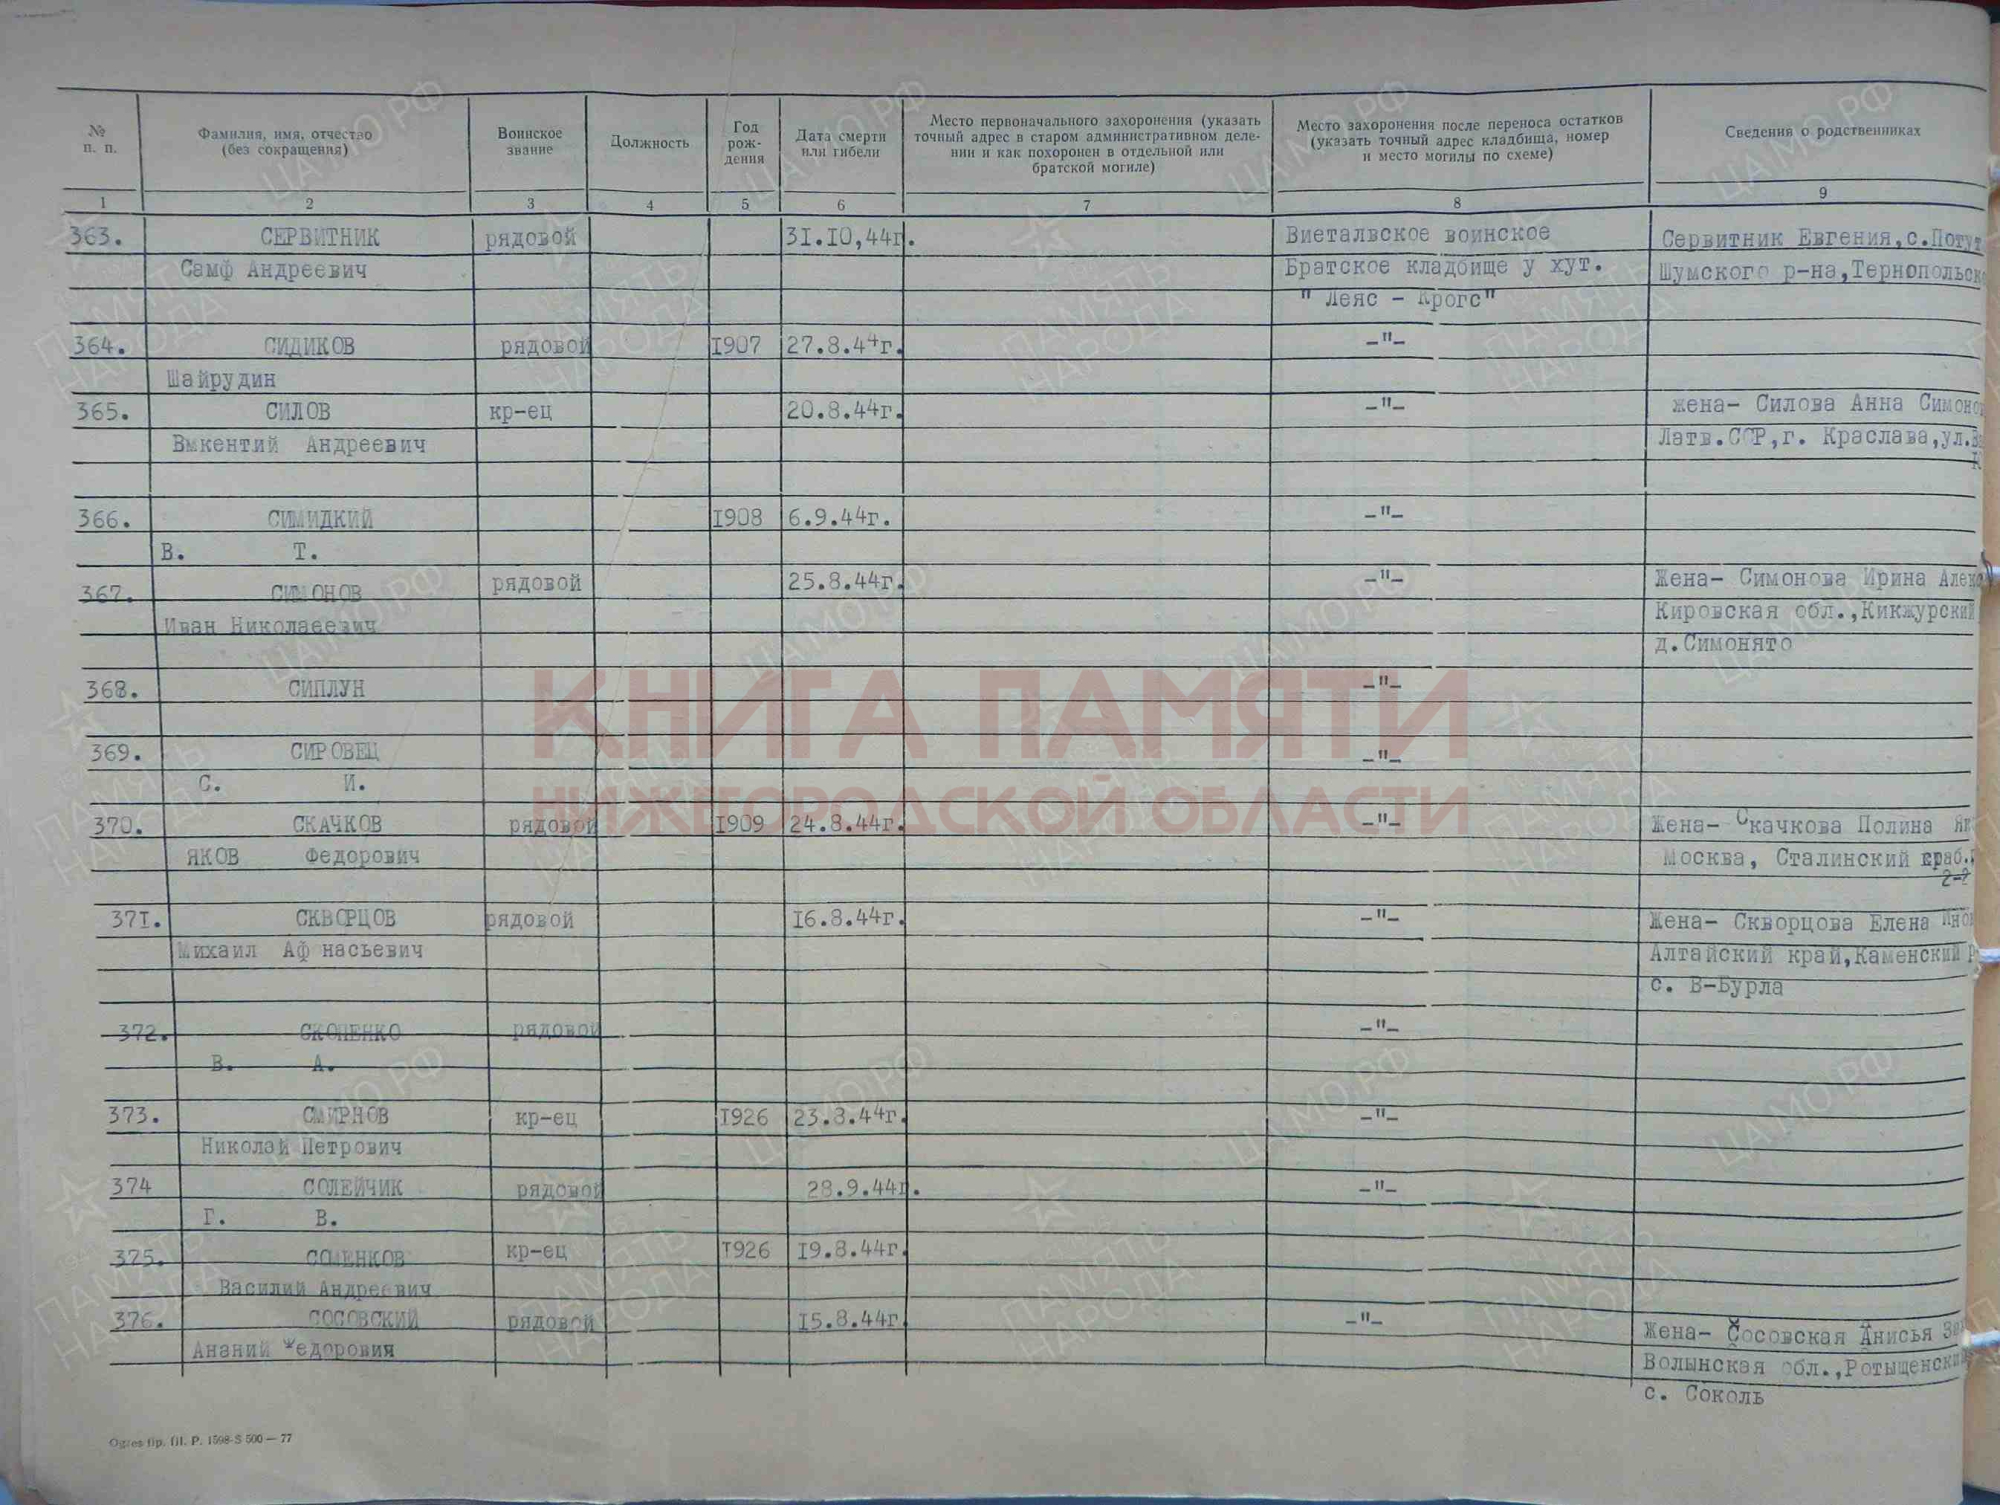 № п. п.
Фамилия, имя, отчество (без сокращения)
Воинское звание
Должность
Год рож- дения
Дата смерти или гибели
Место первоначального захоронения (указать точный адрес в старом административном деле- нии и как похоронен в отдельной или братской могиле)
Место захоронения после переноса остатков (указать точный адрес кладбища, номер и место могилы по схеме)
Сведения о родственниках
1 2 3 4 5 6 7 8 9
363. СЕРВИТНИК рядовой 31.10,44г. Виетальское воинское Сервитник Евгения,с.Потут
Самф Андреевич Братское кладбище у хут. Шумского р-на,Тернопольск
" Леяс - Крогс"
364. СИДИКОВ рядовой 1907 27.8.44г. –"–
Шайрудин
365. СИЛОВ кр-ец 20.8.44г. –"– жена- Силова Анна Симоно
Выкентий Андреевич Латв.ССР,г. Краслава,ул.
366. СИМИДКИЙ 1908 6.9.44г. –"–
В. Т.
367. СИМОНОВ рядовой 25.8.44г. –"– Жена- Симонова Ирина Алек
Иван Николаеевич Кировская обл.,Кикжурский
д.Симонято
368. СИПЛУН –"–
КНИГА ПАМЯТИ
369. СИРОВЕЦ –"–
С. И.
НИЖЕГОРОДСКОЙ ОБЛАСТИ
370. СКАЧКОВ рядовой 1909 24.8.44г. –"– Жена- Скачкова Полина Як
ЯКОВ Федорович Москва, Сталинский краб.
2-2
371. СКВОРЦОВ рядовой 16.8.44г. –"– Жена- Скворцова Елена
Михаил Аф насьевич Алтайский край,Каменский р
с. В-Бурла
372. СКОПЕНКО рядовой –"–
В. А.
373. СМИРНОВ кр-ец 1926 23.8.44г. –"–
Николай Петрович
374 СОЛЕЙЧИК рядовой 28.9.44г. –"–
Г. В.
375. кр-ец 1926 19.8.44г.
Василий Андреевич
376. СОСОВСКИЙ рядовой 15.8.44г. –"– Жена- Сосовская Анисья
Ананий Федоровия Волынская обл.,Ротыщенски
с. Соколь
Ogres tip. fil. P. 1598-S 500 — 77
ЦАМО.РФ
ПАМЯТЬ НАРОДА